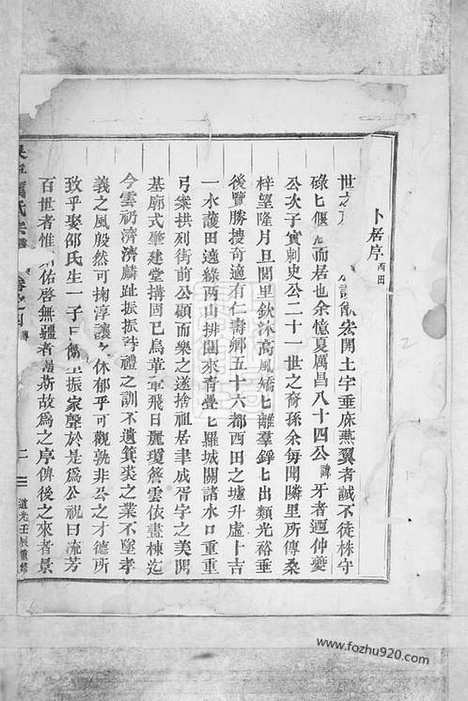 卜居序 西田
世之 宏開土宇垂庥燕翼者誠不徒株守
碌匕偃 而居也余憶夏厲昌八十四公諱牙者迺仲夔
公次子實刺史公二十一世之裔孫余每聞隣里所傳桑
梓望隆月旦閭里欽沐高風矯匕離羣錚匕出類光裕垂
後覽勝搜奇適有仁壽鄉五十六都西田之墟升虛卜吉
一水護田遠綠兩山排闥來青疊匕羅城關諸水口重重
弓案拱列街前公顧而樂之遂捨祖居聿成胥宇之美閎
基廓式肇建堂搆固已鳥革翬飛日麗瓊簷雲依畫棟迄
今雲礽濟濟麟趾振振詩禮之訓不遺箕裘之業不墜孝
義之風殷然可掬淳讓 休郁乎可觀孰非公之才德所
致乎娶邵氏生一子曰 振家聲於是為公祝曰流芳
百世者惟 佑啓無疆者 斯故為之序俾後之來者景
氏宗譜 卷之 二 道光壬辰重修
www.fozhu920.com